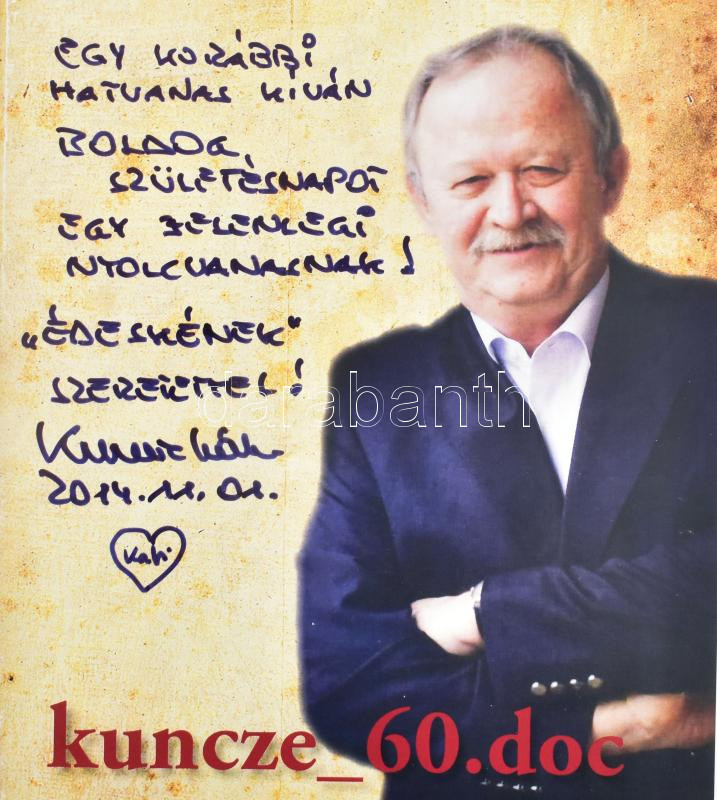 EGY KORÁBBI
HATVANAS KIVÁN
BOLDOG
SZÜLETÉSNAPOT
EGY JELENLEGI
NYOLCVANASNAK!
„ÉDESKÉNEK"
SZERETETTEL!
2014.11.01.
Kati
darabanth
kuncze_60.doc